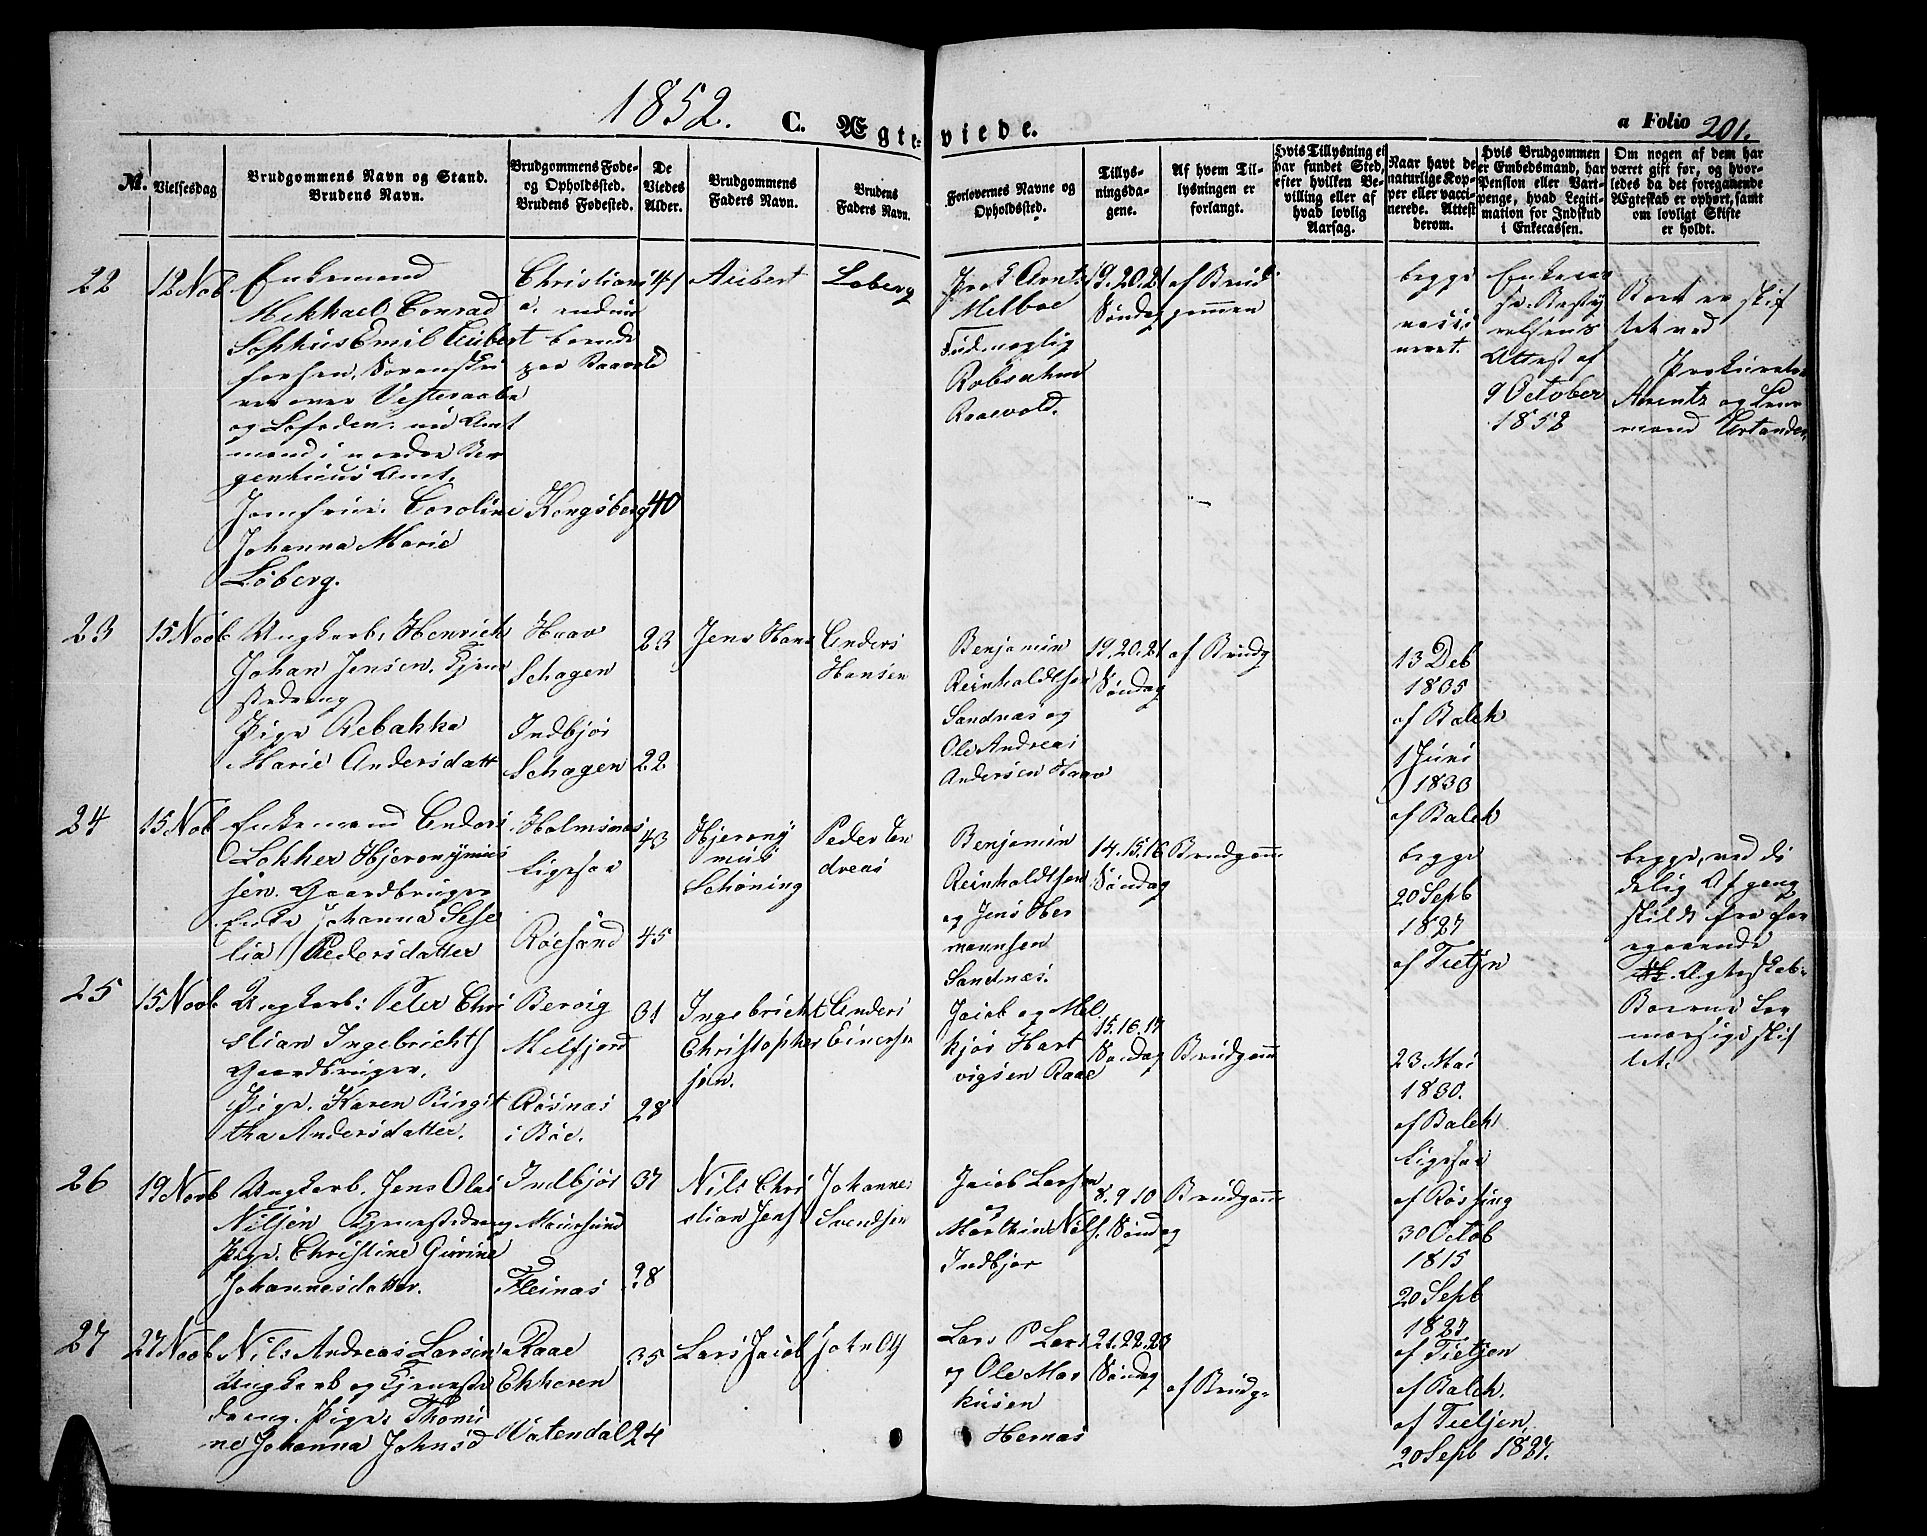 1852.
C. Ægteviede.
a Folio 201.
No.
Vielsesdag
Brudgommens Navn og Stand.
Brudens Navn.
Brudgommens Føde-
og Opholdssted.
Brudens Fødested.
De
Viedes
Alder.
Brudgommens
Faders Navn.
Brudens
Faders Navn.
Forlovernes Navne og
Opholdssted.
Tillys-
ningsda-
gene.
Af hvem Til-
lysningen er
forlangt.
Hvis Tillysning ei
har fundet Sted,
efter hvilken Be-
villing eller af
hvad lovlig
Aarsag.
Naar havt de
naturlige Kop-
per eller vacci-
nerede. Attest
derom.
Hvis Brudgommen
er Embedsmand, har
Pension eller Vart-
penge, hvad Legiti-
mation for Indskud
i Enkecassen.
Om nogen af dem har
været gift før, og hvor-
ledes da det foregaaende
Ægteskab er ophørt, samt
om lovligt Skifte
er holdt.
22
12 Nob
Enkemand
Mikhael Conrad
Sophus Emil Aubert
Vesteraalen
og Lofoden, nu Amt
mand i nordre Ber
genhuus Amt.
Jomfrue Caroline
Johanna Marie
Løberg.
Christiani
a
boende
paa Raavold
Kongsberg
41
40
Aubert
Loberg
Prok Arntz
Melboe
Robsahm
Raavold.
19. 20. 21
Søndag
af Brud
gommen
begge
vacci
neret.
Attest af
9 October
1852
Boet er skif
tet ved
Prokurator
Arentz og
23
15 Novb
Ungkarl, Henrich
Johan Jensen, Tjene
stedreng
Pige Rebakka
Marie Andersdatt
Haav
Schagen
Indbjør
Schagen
23
22
Jens Hans
Anders
Hansen
Benjamin
Reinholdtsen
Sandnæs og
Ole Andreas
Andersen Haav
19. 20. 21
Søndag
af Brudg
13 Deb
1835
af Balch
1 Juni
1833
af Balch
24
15 Nob
Enkemand Anders
Lokker Hjeronymus
sen. Gaardbruger
Enke Johanna Sese
lia Pedersdatter
Holmsnæs
ligesaa
Røesand
43
45
Hjerony
mus
Schøning
Peder An
dreas
Benjamin
Reinholdtsen
og Jens Her
mannsen
Sandnæs.
14. 15. 16
Søndag
Brudgom
begge
20 Sepb
1827
af Tietjen
begge, ved dø
delig Afgang
skildt fra for
egaaende
Ægteskab.
skif
tet.
25
15 Novb
Ungkarl: Peter Chri
stian Ingebrichts
Gaardbruger.
Pige. Karen Birgit
tha Andersdatter.
Bervig
Melfjord
Røsnæs
i Bøe.
31
28
Ingebricht
Christopher
sen.
Anders
Einersen
Jacob og Mel
kjor Hart
vigsen Raae
15. 16. 17
Søndag
Brudgom
23 Mai
1830.
af Balch
Ligesaa
26
19 Novb
Ungkarl. Jens Olai
Nilsen Tjenestedreng
Pige. Christine Gurine
Johannesdatter.
Indbjør
Maursund
Fleinæs
37
28
Nils Chri
stian Jens
Johannes
Svendsen
Jacob Larsen
og
Marthin Nils.
Indbjør
8. 9 10
Søndag
Brudgom
af Røssing
30 Octob
1815
20 Sepb
1827
af Tietjen
27
27 Novb
Nils Andreas Larsen
Ungkarl og Tjeneste
dreng. Pige Thomi
ne Johanna Johnsd
Raae
Ekkeren
Vatendal
35
24
Lars Jacob
John Ol
Lars P Lars
og Ole Mar
kusen
Hernæs
21. 22. 23
Søndag
af Brudg.
af Balch.
af Tietjen
20 Sepb 1827.